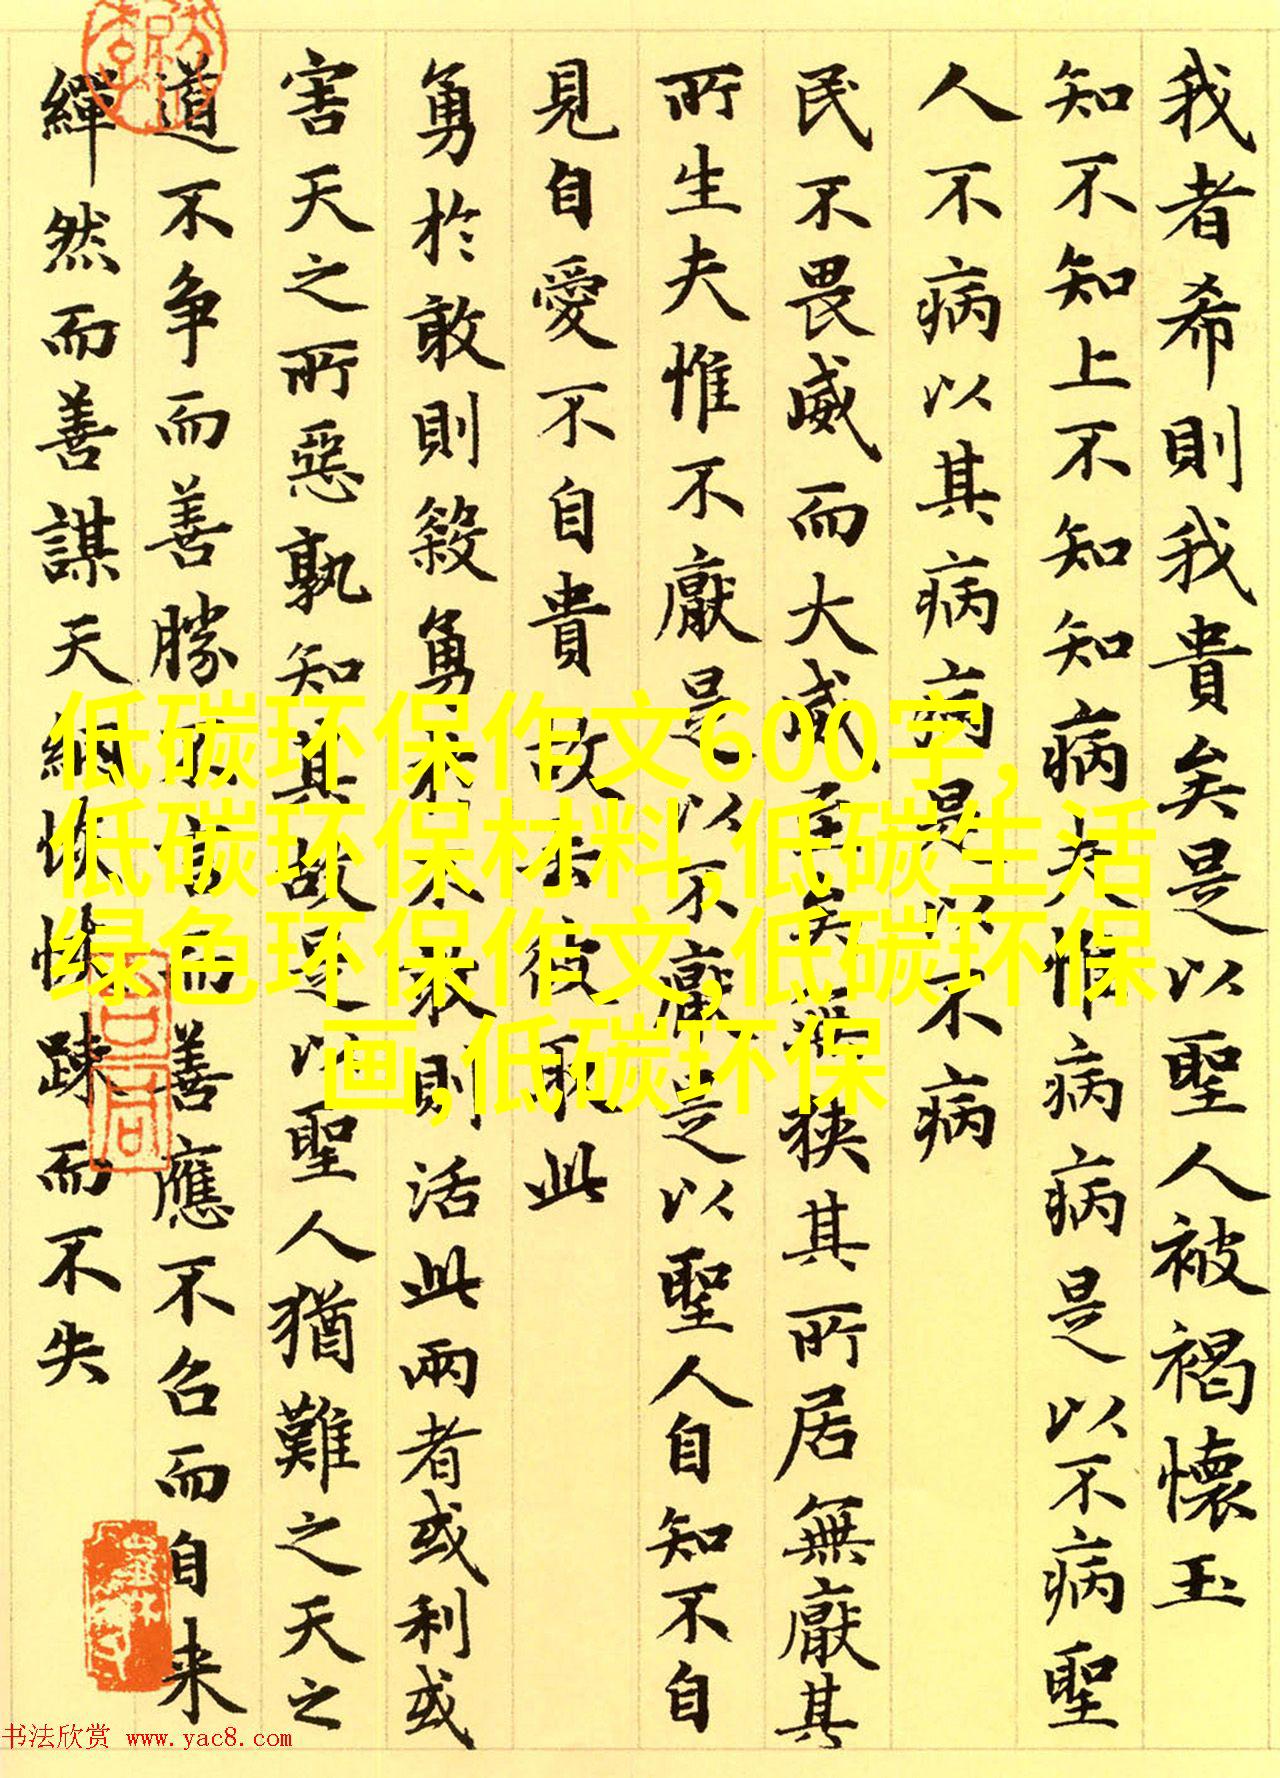 我者希則我貴矣是以聖人被褐懷玉
知不知上不知知病夫惟病病是以不病聖
人不病以其病病是以不病
民不畏威而大威至矣無狹其所居無厭其
所生夫惟不厭是以不厭是以聖人自知不自
見自愛不自貴故去彼取此
勇於敢則殺勇於不敢則活此兩者或利或
害天之所惡孰知其故是以聖人猶難之天之
道不争而善勝不言而善應不召而自来
繟然而善謀天網恢恢踈而不失
低碳环保作文600字,
低碳环保材料,低碳生活
绿色环保作文,低碳环保
画,低碳环保
书法欣赏 www.yac8.com